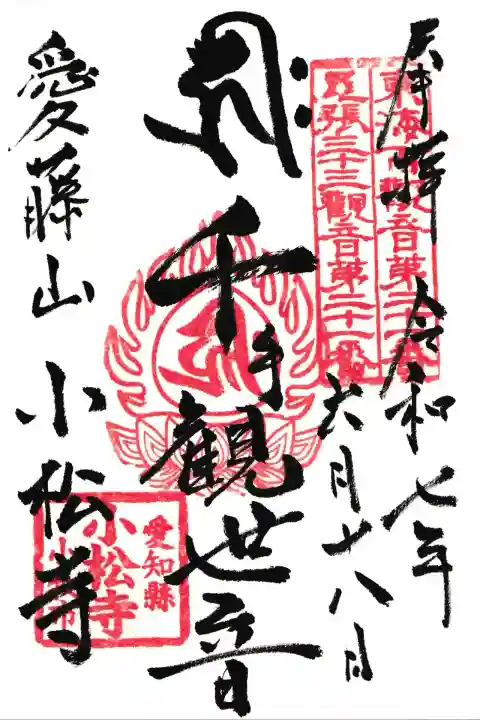 奉拝 令和七年
六月十八日
東海百觀音第二十一番
尾張三十三觀音第二十一番
ह्रीः
千手観世音
愛藤山 小松寺
愛知縣
小松寺
小牧市